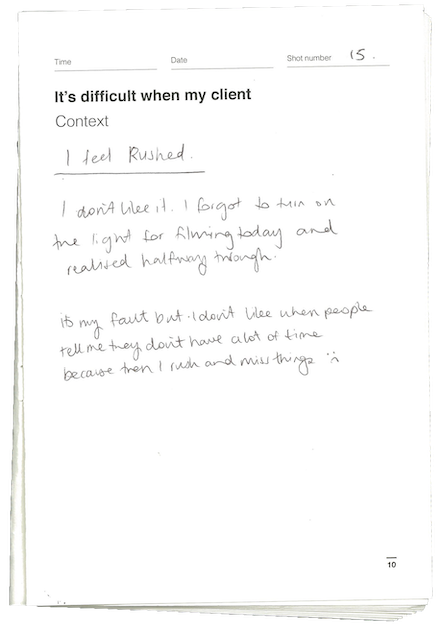 Time Date Shot number 15.
It's difficult when my client
Context
I feel Rushed.
I don't like it. I forgot to turn on
the light for filming today and
realised halfway through.
its my fault but I don't like when people
tell me they don't have a lot of time
because then I rush and miss things :(
10